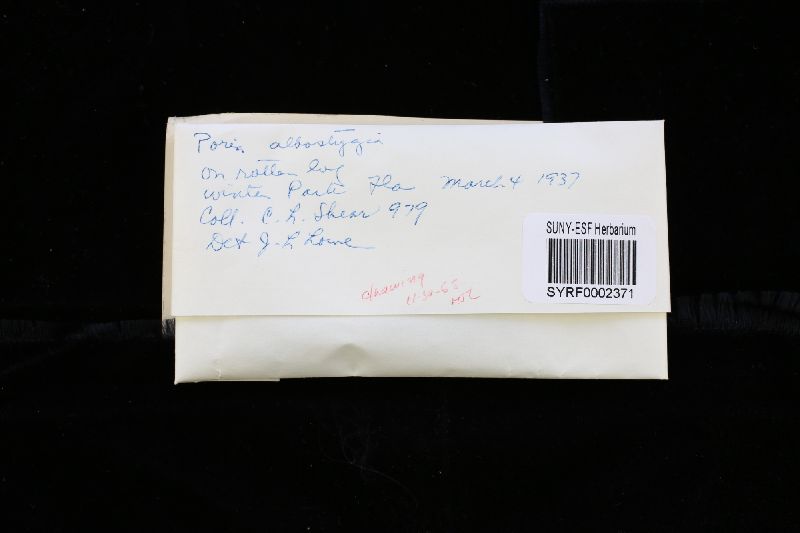 Poria albostygia
on rotten log
Winter Park Fla March 4 1937
Coll. C. L. Shear 979
Det J. L. Lowe
drawing
11-30-65
SUNY-ESF Herbarium
SYRF0002371